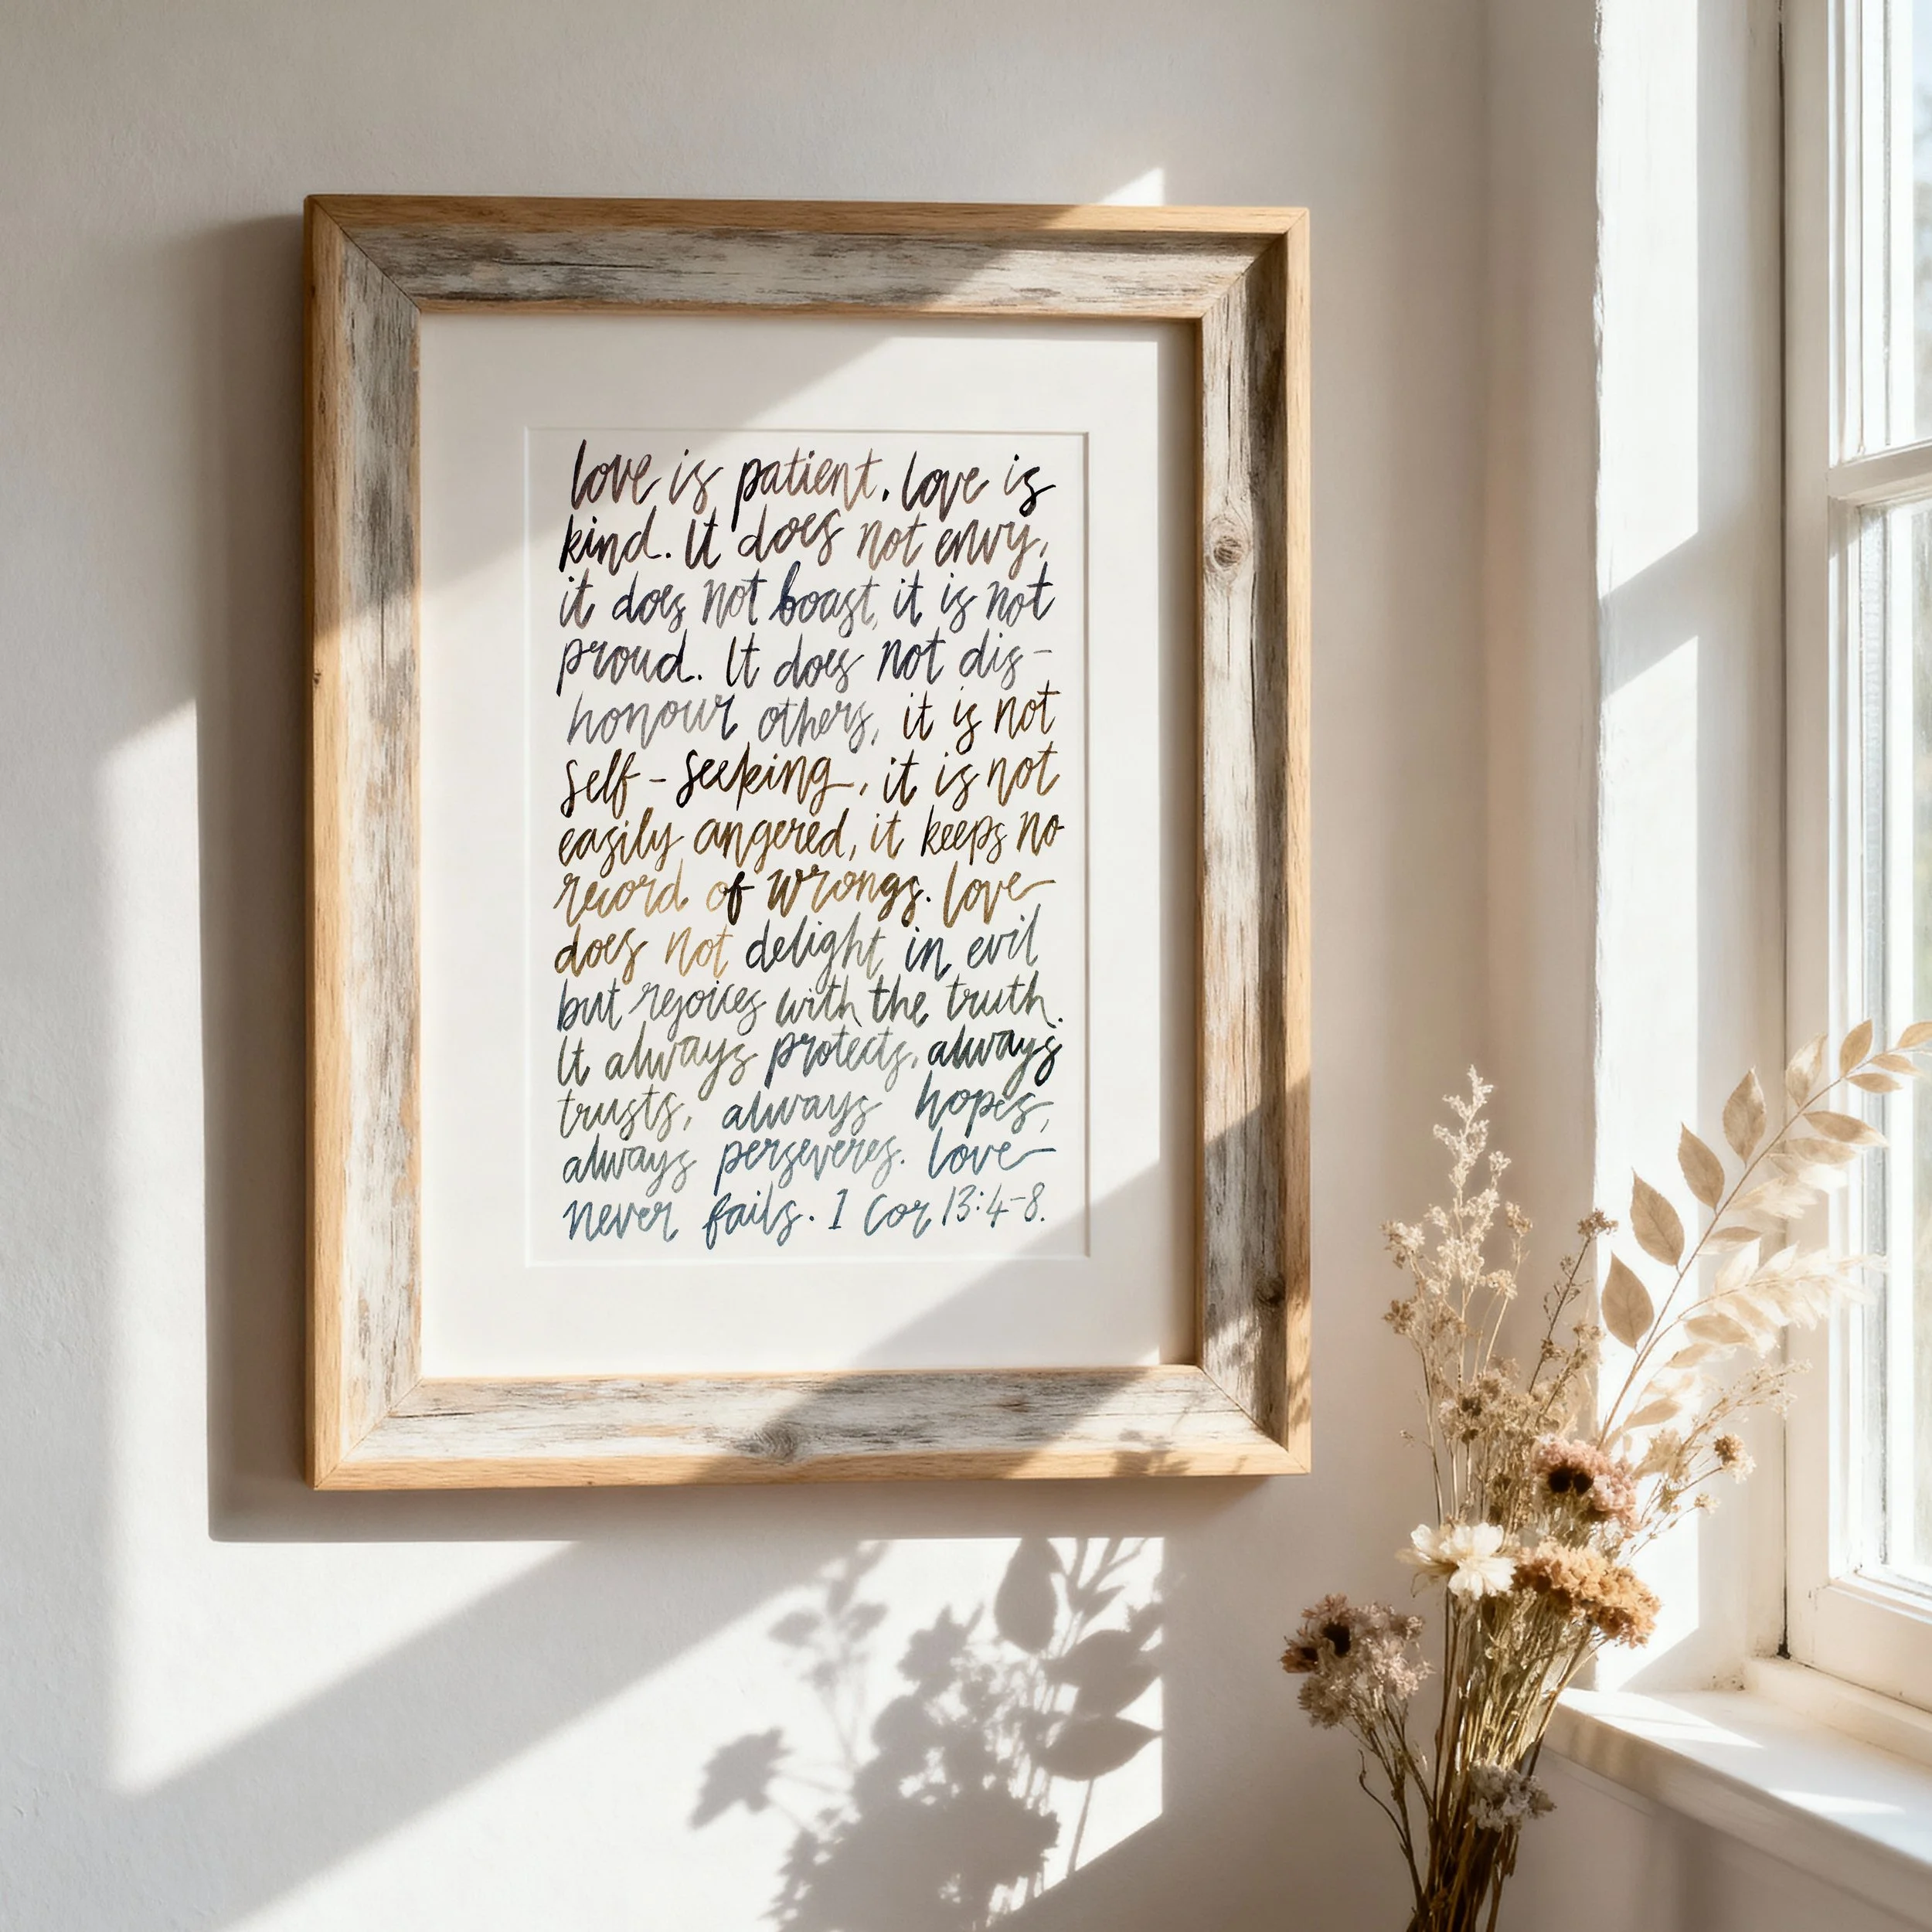 love is patient. love is
kind. It does not envy,
it does not boast, it is not
proud. It does not dis-
honour others, it is not
self-seeking, it is not
easily angered, it keeps no
record of wrongs. love
does not delight in evil
but rejoices with the truth.
It always protects, always
trusts, always hopes,
always perseveres. love
never fails. 1 Cor 13:4-8.